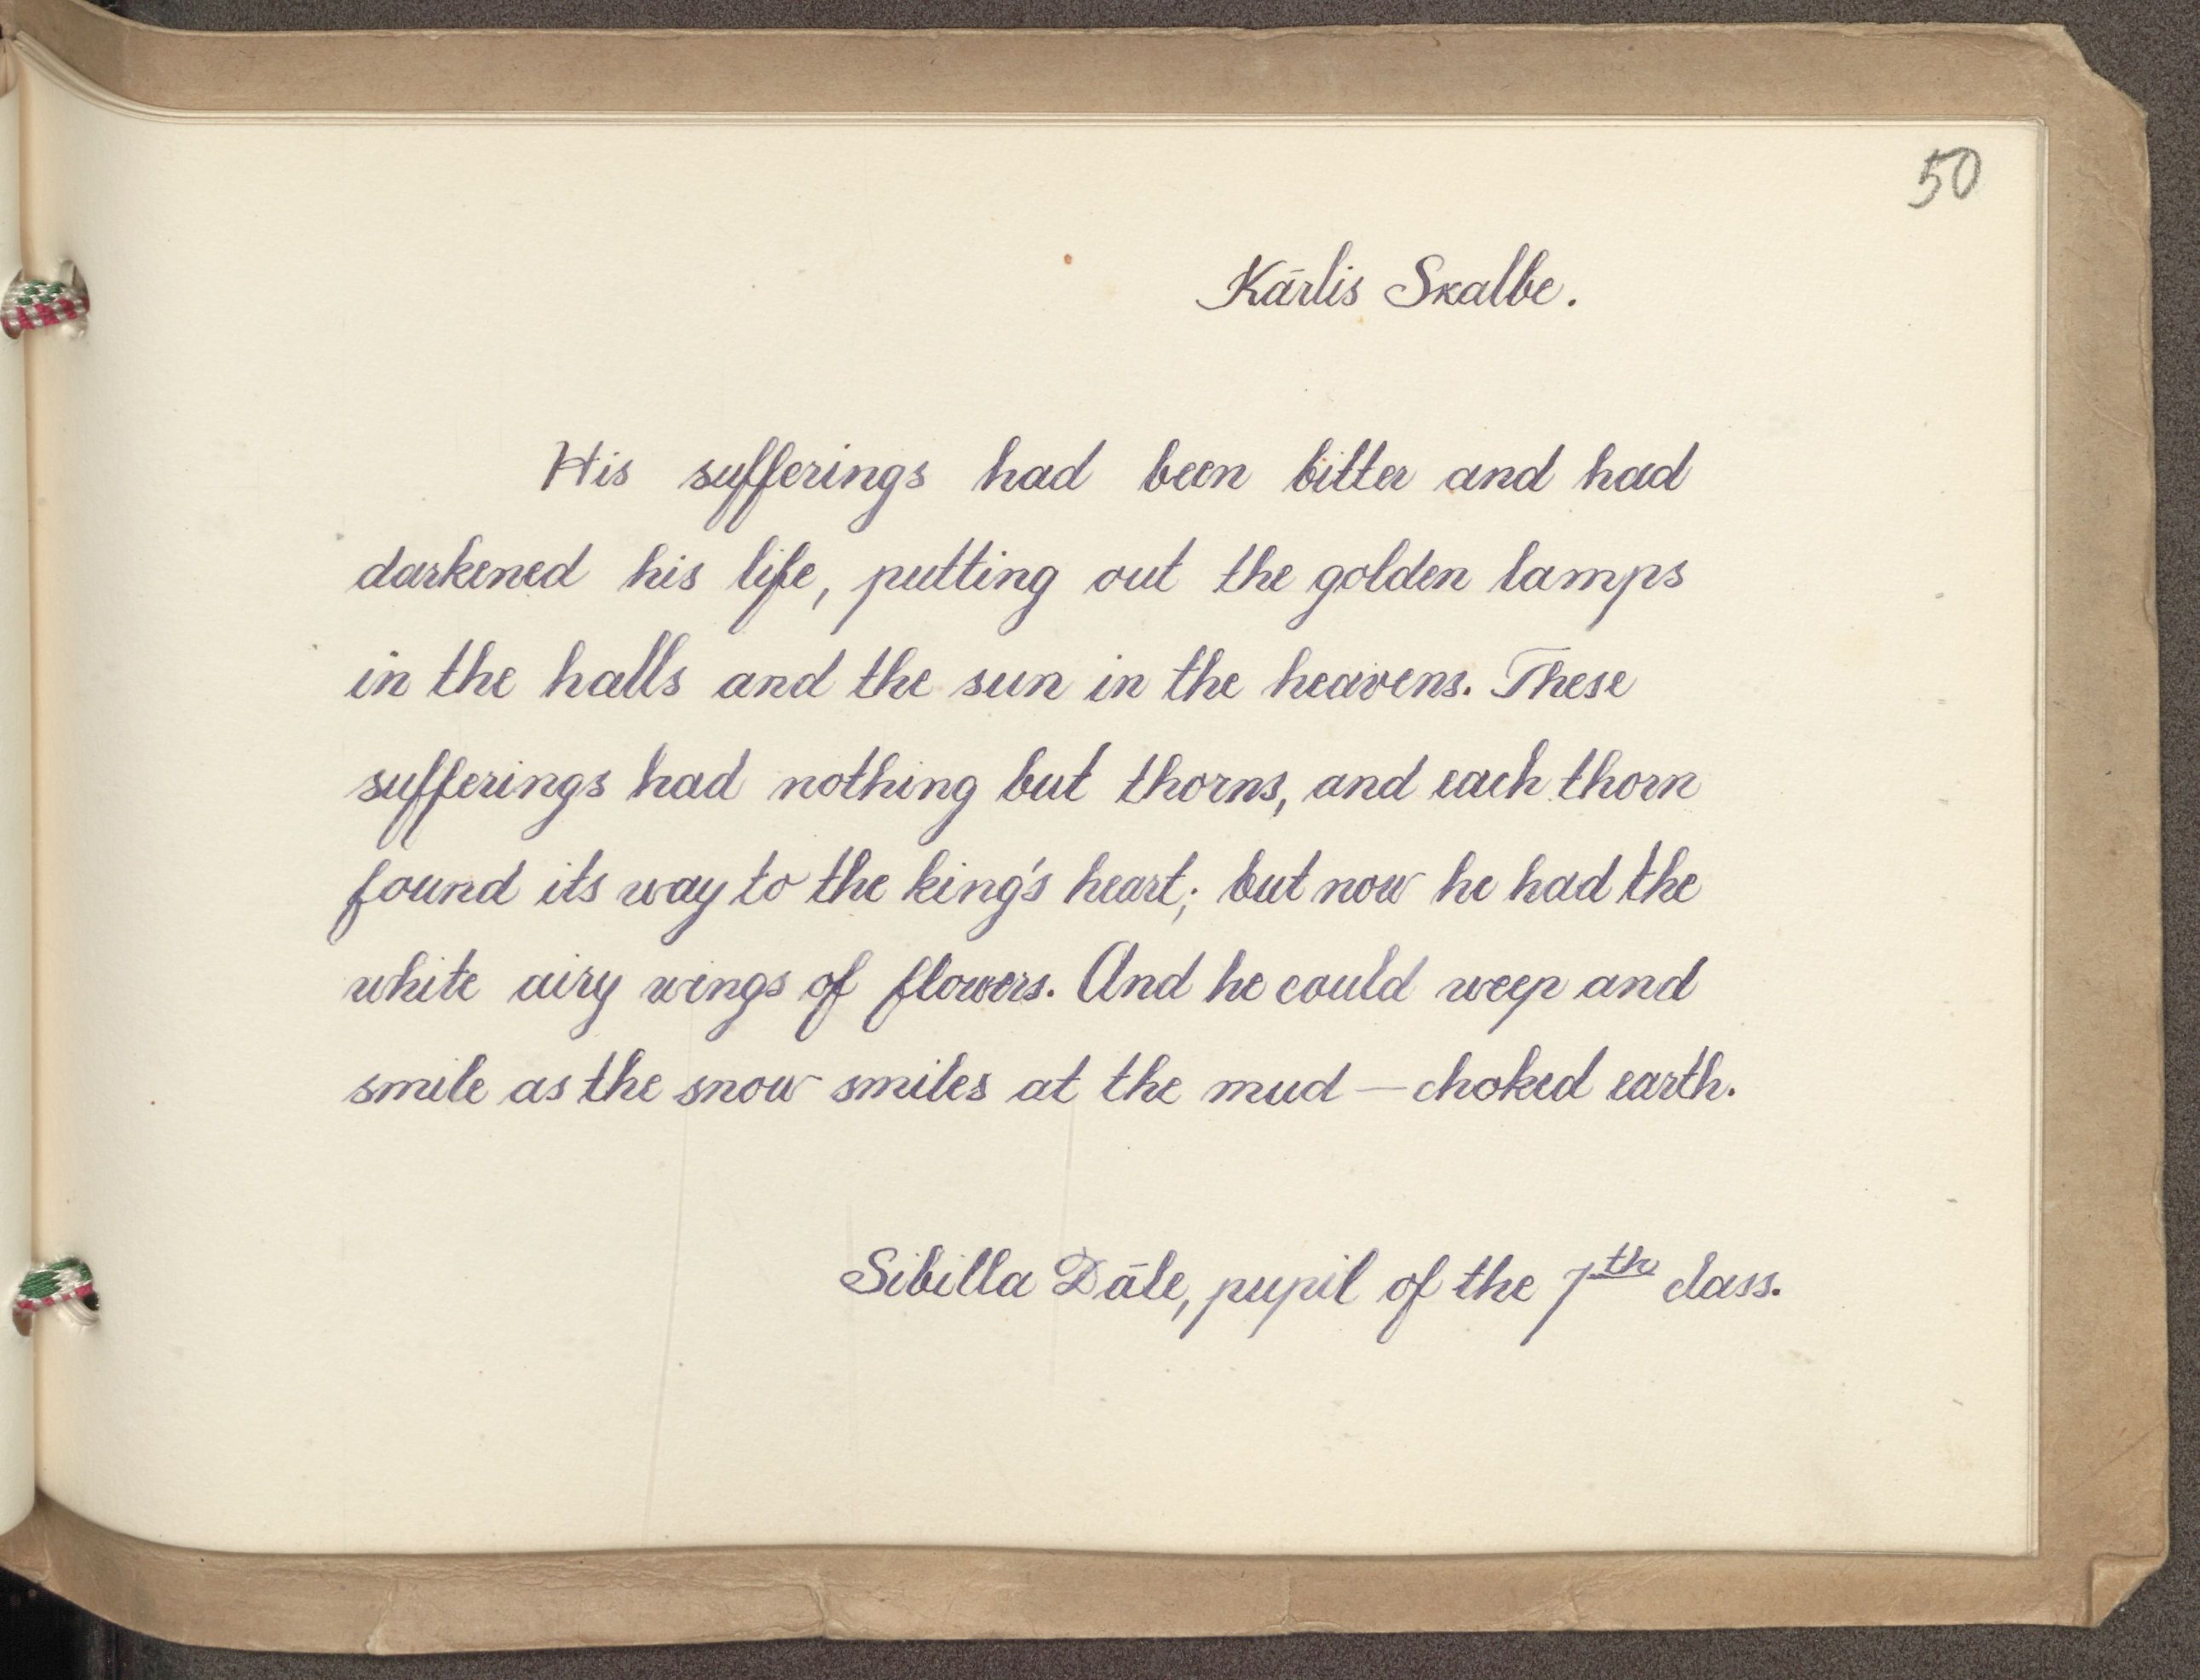 50
Kārlis Skalbe.
His sufferings had been bitter and had
darkened his life, putting out the golden lamps
in the halls and the sun in the heavens. These
sufferings had nothing but thorns, and each thorn
found its way to the king's heart; but now he had the
white airy wings of flowers. And he could weep and
smile as the snow smiles at the mud — choked earth.
Sibilla Dāle, pupil of the 7th class.